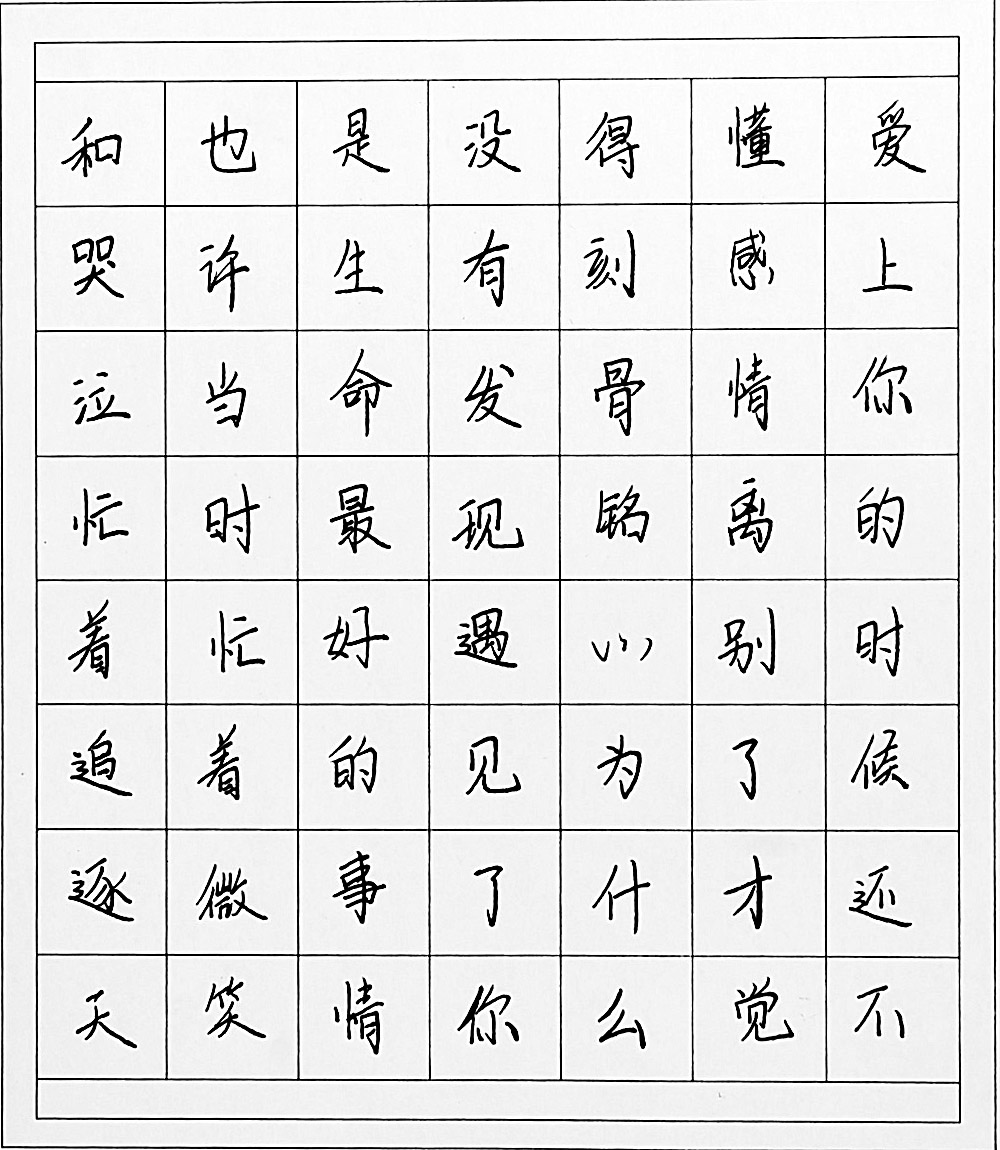 爱上你的时候还不
懂感情离别了才觉
得刻骨铭心为什么
没有发现遇见了你
是生命最好的事情
也许当时忙着微笑
和哭泣忙着追逐天